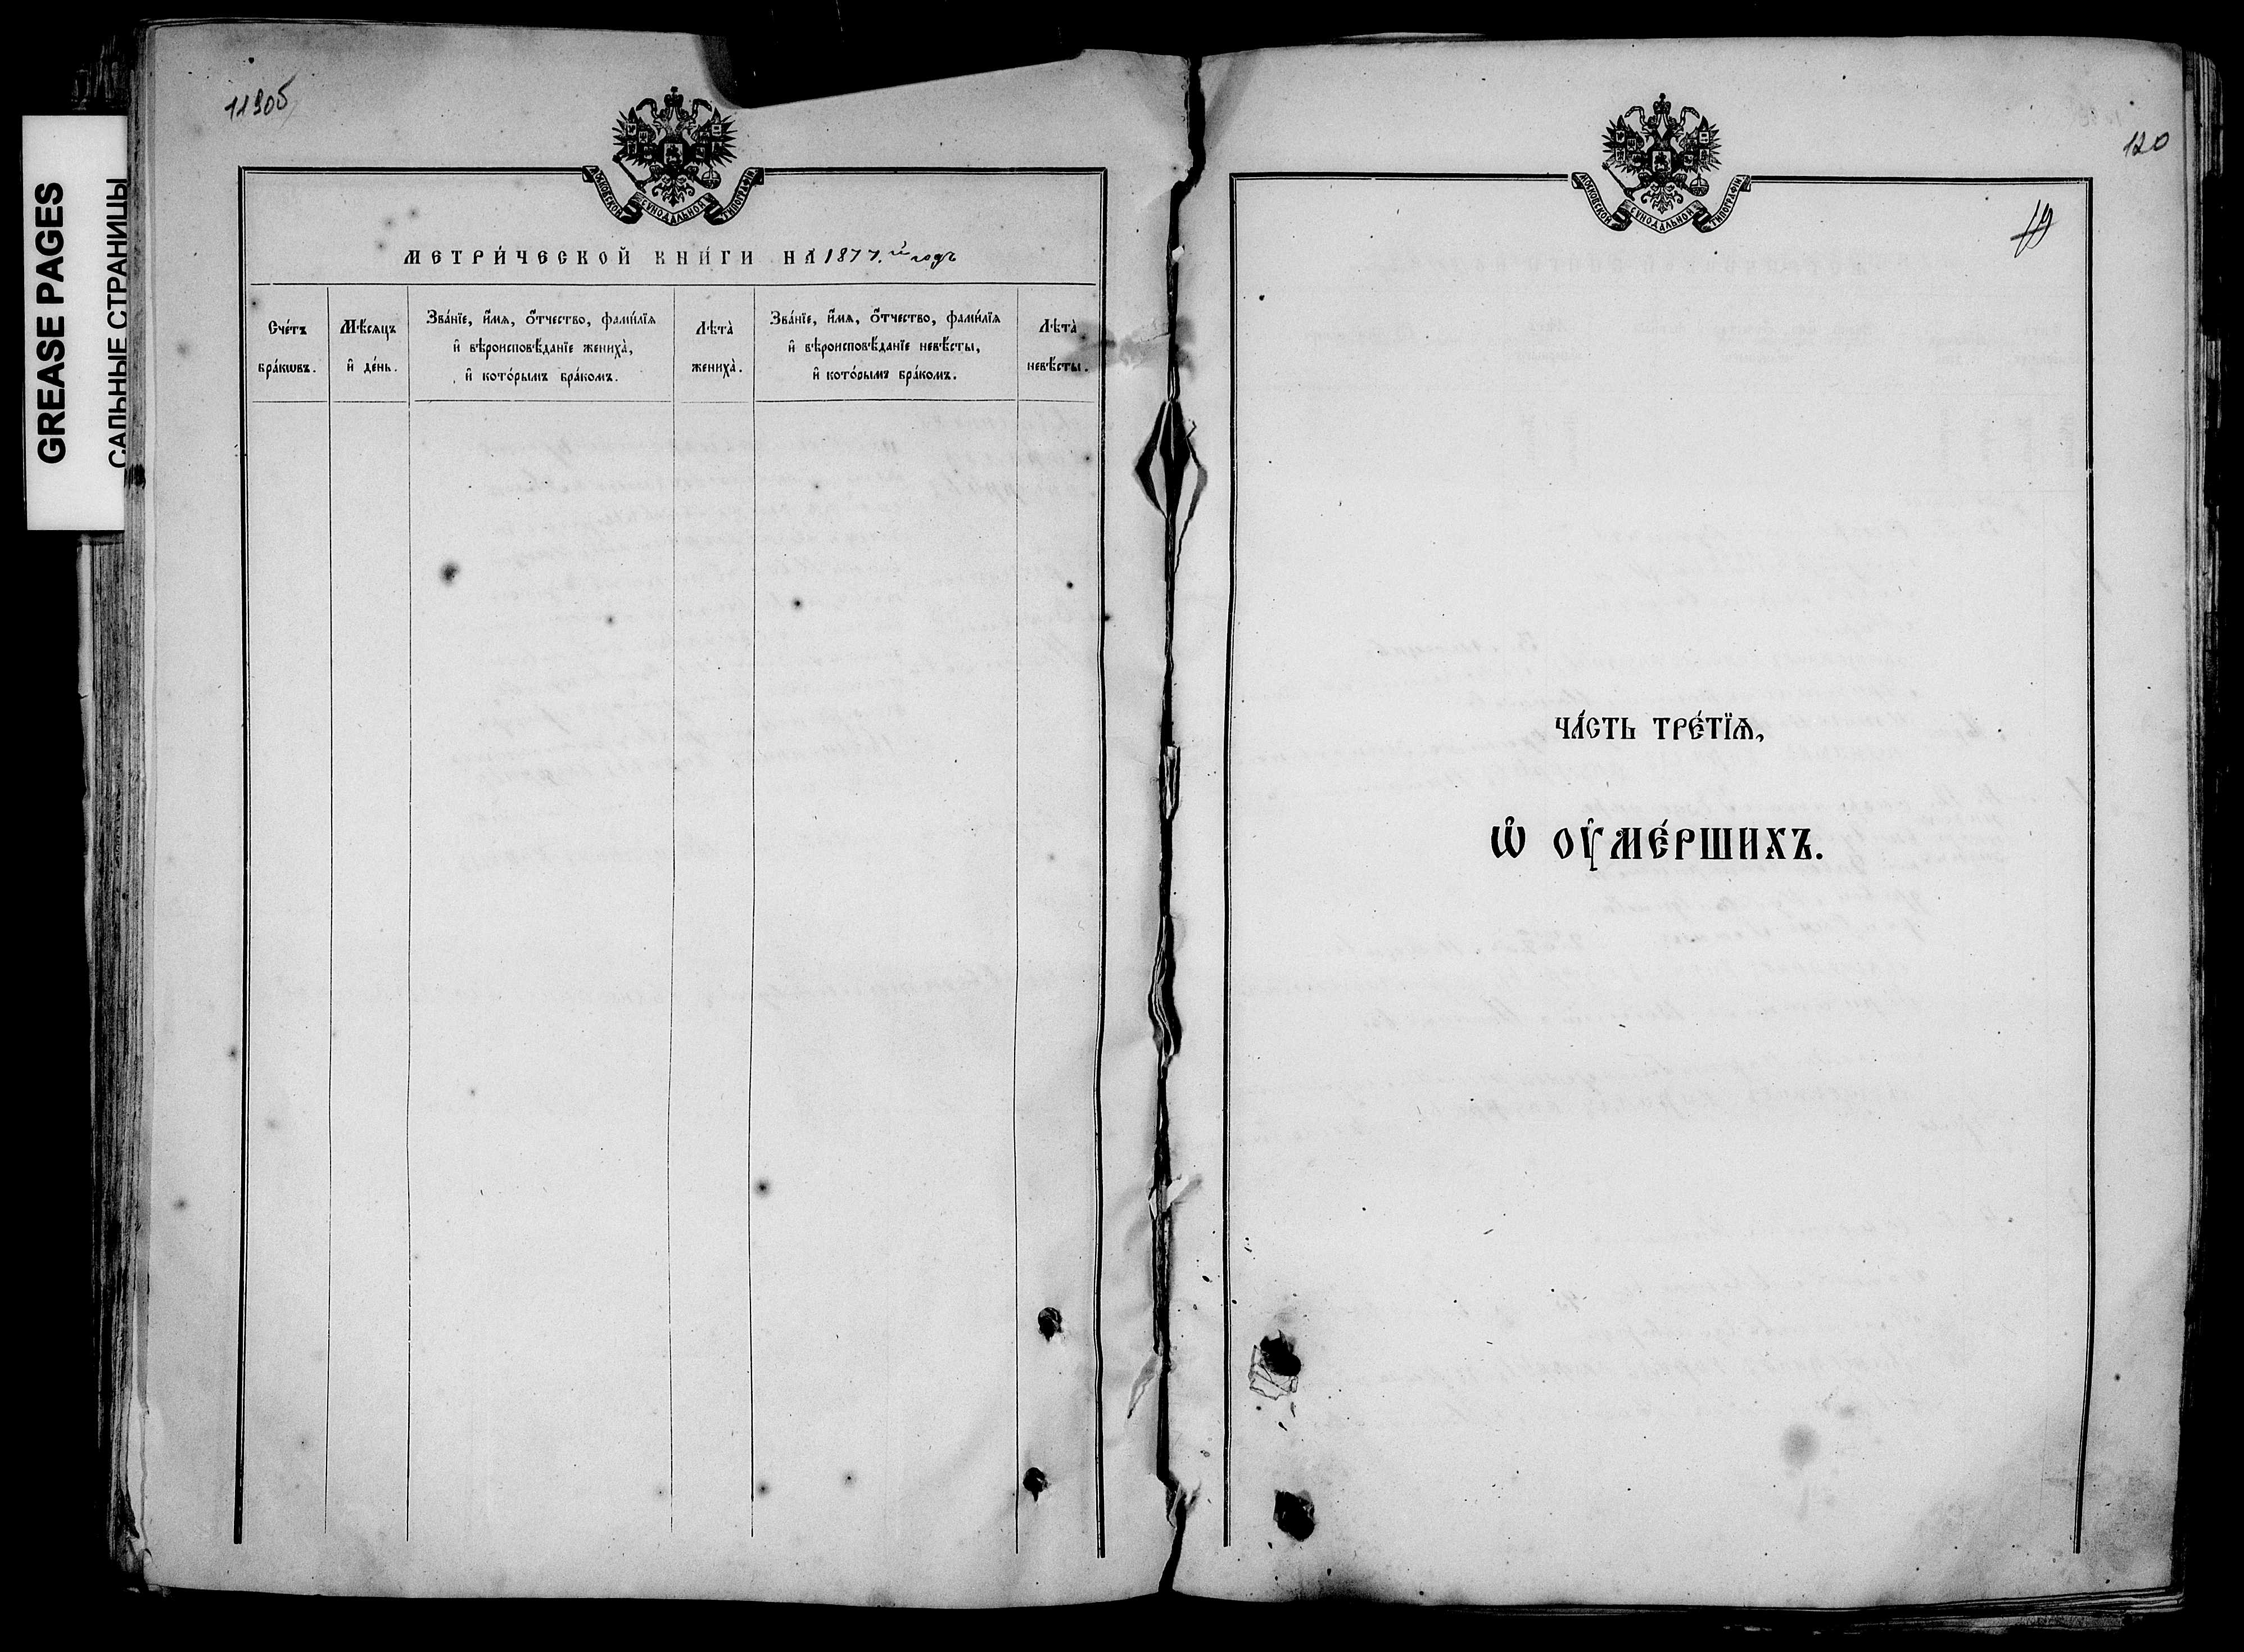 GREASE PAGES
САЛЬНЫЕ СТРАНИЦЫ
119об
МОСКОВСКОЙ СѴНОДАЛЬНОЙ ТИПОГРАФІИ
МЕТРИ́ЧЕСКОЙ КНИ́ГИ НА 1877.й годъ
Сче́тъ бра́кѡвъ.
Мѣ́сяцъ и҆ де́нь.
Зва́нїе, и҆́мѧ, ѻ҆́тчество, фами́лїѧ
и҆ вѣроисповѣ́данїе жениха̀,
и҆ кото́рымъ бра́комъ.
Лѣта̀ жениха̀.
Зва́нїе, и҆́мѧ, ѻ҆́тчество, фами́лїѧ
и҆ вѣроисповѣ́данїе невѣ́сты,
и҆ кото́рымъ бра́комъ.
Лѣта̀ невѣ́сты.
120
МОСКОВСКОЙ СѴНОДАЛЬНОЙ ТИПОГРАФІИ
19
ЧА́СТЬ ТРЕ́ТЇѦ,
Ѡ҆ ОУ҆МЕ́РШИХЪ.